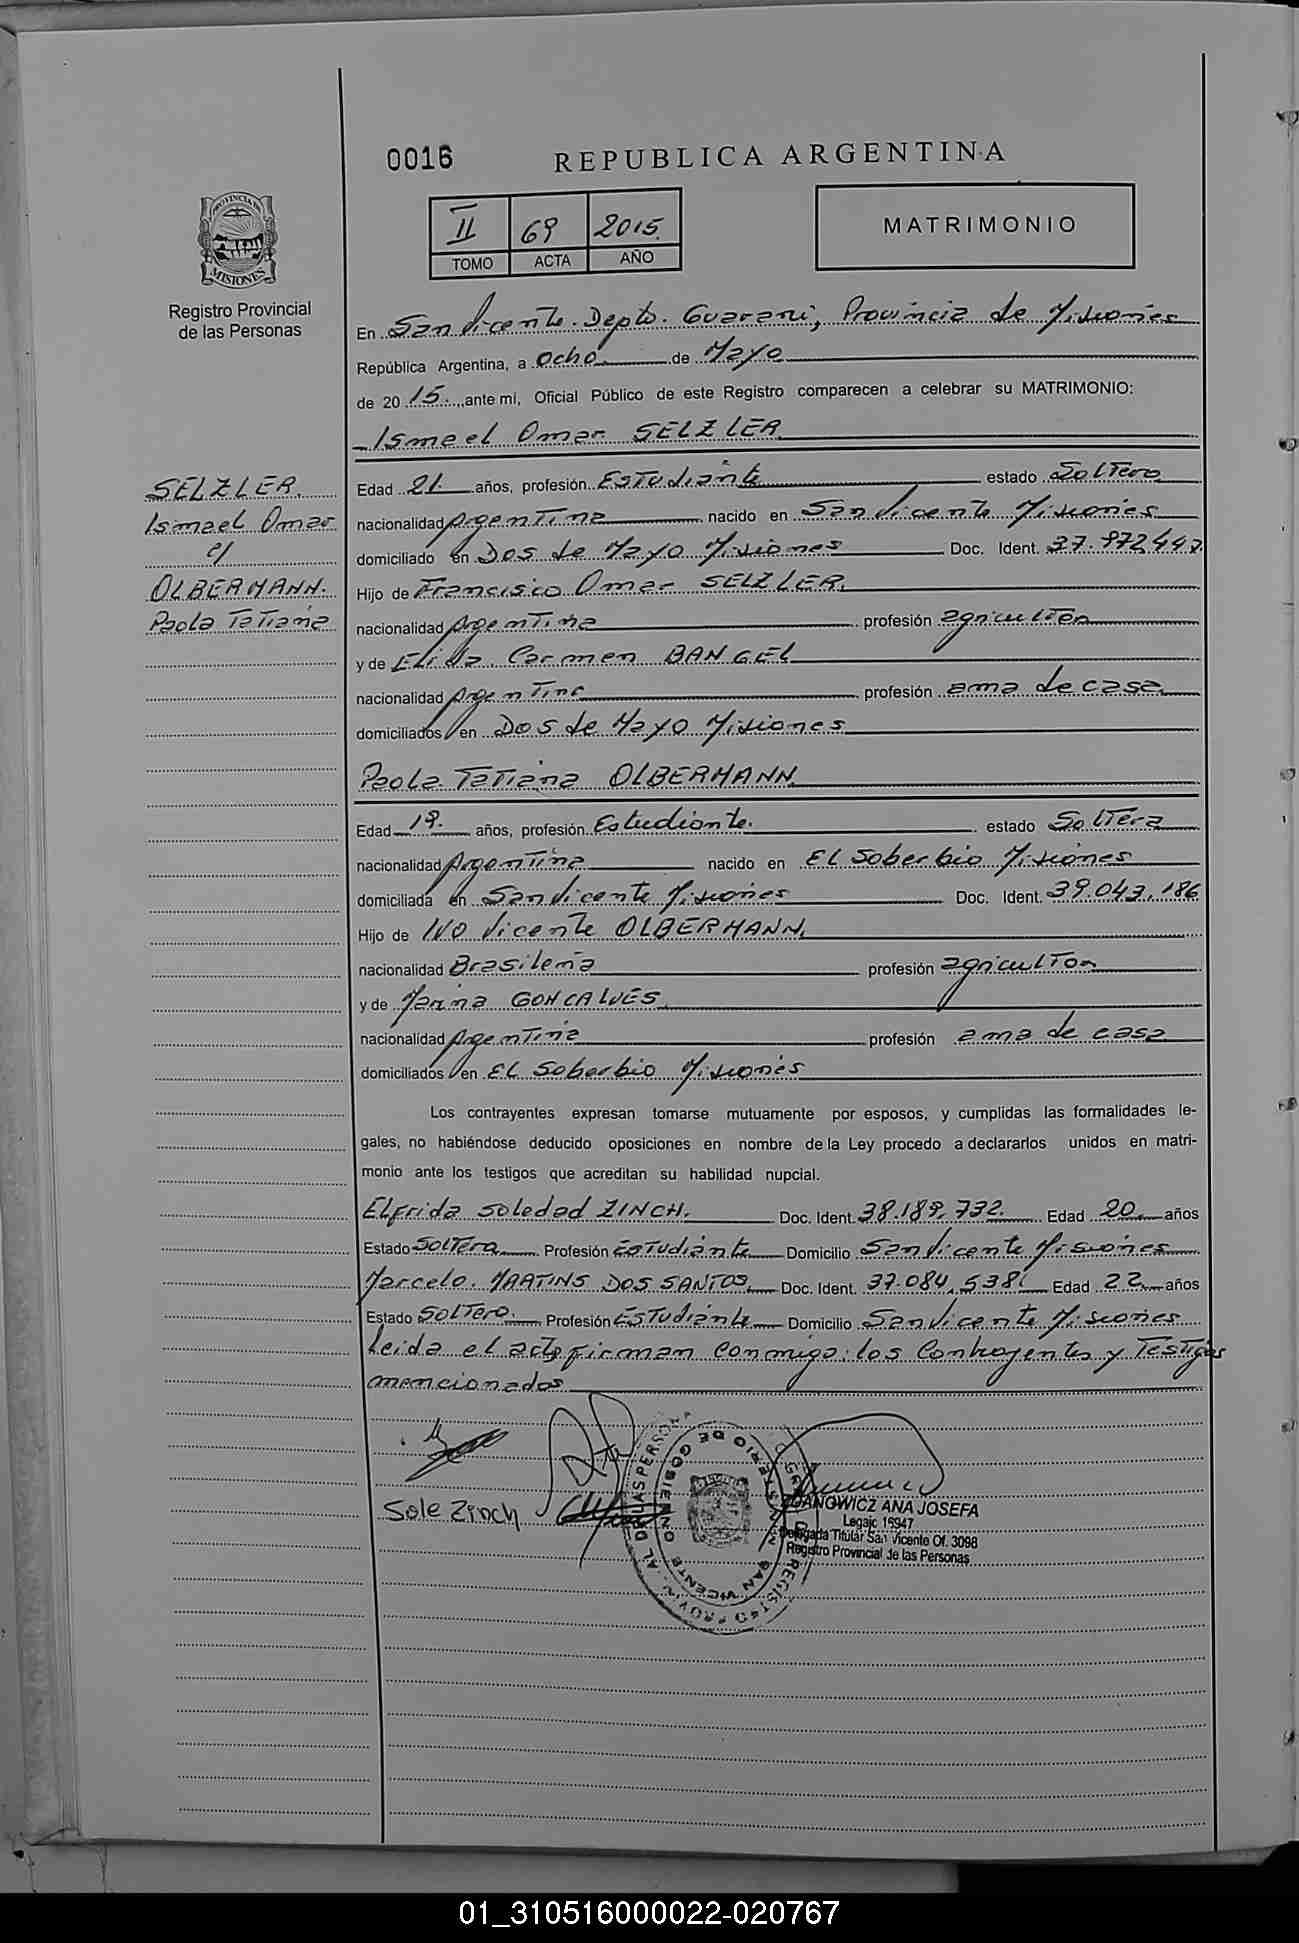 0016 REPUBLICA ARGENTINA
II 69 2015
TOMO ACTA AÑO
MATRIMONIO
PROVINCIA DE
MISIONES
Registro Provincial
de las Personas
En San Vicente. Depto. Guarani, Provincia de Misiones
República Argentina, a Ocho de Mayo
de 20 15 ante mí, Oficial Público de este Registro comparecen a celebrar su MATRIMONIO:
Ismael Omar SELZLER
SELZLER.
Ismael Omar
c/
OLBERMANN.
Paola Tatiana
Edad 21 años, profesión Estudiante estado Soltero
nacionalidad Argentina nacido en San Vicente Misiones
domiciliado en Dos de Mayo Misiones Doc. Ident. 37.972.447
Hijo de Francisco Omar SELZLER.
nacionalidad Argentina profesión agricultor
y de Elida Carmen BANGEL
nacionalidad Argentina profesión ama de casa
domiciliados en Dos de Mayo Misiones
Paola Tatiana OLBERMANN
Edad 19. años, profesión Estudiante. estado Soltera
nacionalidad Argentina nacido en El Soberbio Misiones
domiciliada en San Vicente Misiones Doc. Ident. 39.043.186
Hijo de IVO Vicente OLBERMANN.
nacionalidad Brasileña profesión agricultor
y de Marina GONCALVES
nacionalidad Argentina profesión ama de casa
domiciliados en El Soberbio Misiones
Los contrayentes expresan tomarse mutuamente por esposos, y cumplidas las formalidades le-
gales, no habiéndose deducido oposiciones en nombre de la Ley procedo a declararlos unidos en matri-
monio ante los testigos que acreditan su habilidad nupcial.
Elfrida Soledad ZINCH. Doc. Ident. 38.189.732 Edad 20 años
Estado Soltera Profesión Estudiante Domicilio San Vicente Misiones
Marcelo. MARTINS DOS SANTOS Doc. Ident. 37.084.538 Edad 22 años
Estado Soltero. Profesión Estudiante Domicilio San Vicente Misiones
Leida el acta firman conmigo: los Contrayentes y Testigos
mencionados
Sole Zinch
ANA JOSEFA
Legajo 15947
Delegada Titular San Vicente Of. 3098
Registro Provincial de las Personas
01_310516000022-020767